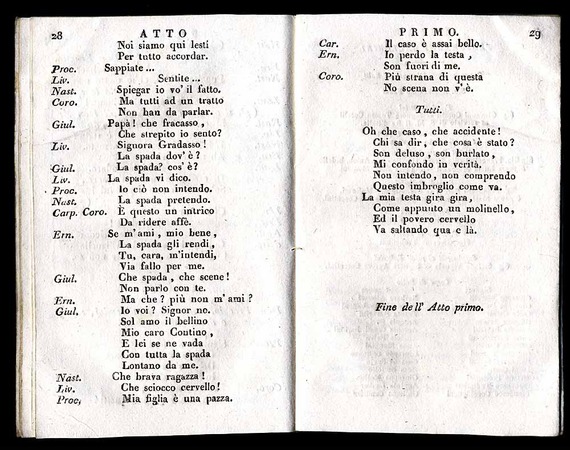 28 ATTO
Noi siamo qui lesti
Per tutto accordar.
Proc. Sappiate ...
Liv. Sentite ...
Nast. Spiegar io vo' il fatto.
Coro. Ma tutti ad un tratto
Non han da parlar.
Giul. Papà! che fracasso,
Che strepito io sento?
Liv. Signora Gradasso!
La spada dov' è?
Giul. La spada? cos' è?
Liv. La spada vi dico.
Proc. Io ciò non intendo.
Nast. La spada pretendo.
Carp. Coro. È questo un intrico
Da ridere affè.
Ern. Se m' ami, mio bene,
La spada gli rendi,
Tu, cara, m'intendi,
Via fallo per me.
Giul. Che spada, che scene!
Non parlo con te.
Ern. Ma che? più non m' ami?
Giul. Io voi? Signor no.
Sol amo il bellino
Mio caro Contino,
E lei se ne vada
Con tutta la spada
Lontano da me.
Nast. Che brava ragazza!
Liv. Che sciocco cervello!
Proc. Mia figlia è una pazza.
PRIMO. 29
Car. Il caso è assai bello.
Ern. Io perdo la testa,
Son fuori di me.
Coro. Più strana di questa
No scena non v' è.
Tutti.
Oh che caso, che accidente!
Chi sa dir, che cosa è stato?
Son deluso, son burlato,
Mi confondo in verità.
Non intendo, non comprendo
Questo imbroglio come va.
La mia testa gira gira,
Come appunto un molinello,
Ed il povero cervello
Va saltando qua e là.
Fine dell' Atto primo.